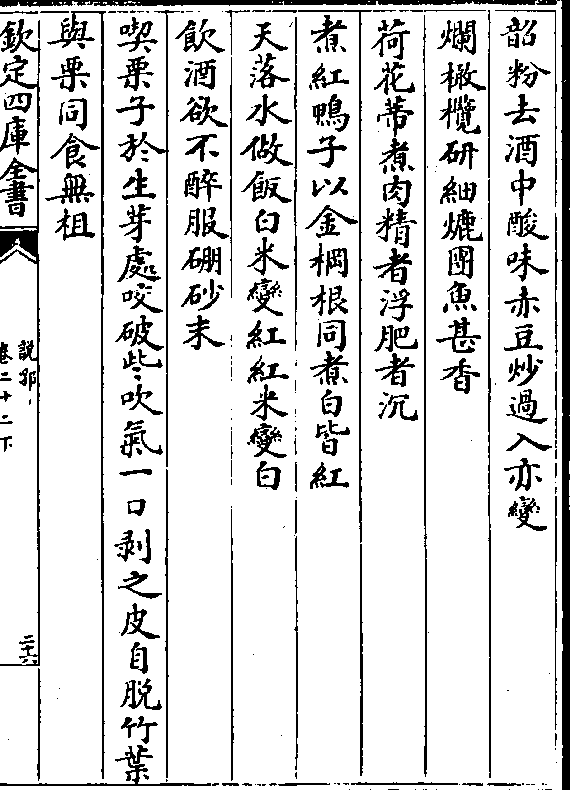 韶粉去酒中酸味赤豆炒過入亦變
爛橄欖研細爊團魚甚香
荷花蒂煮肉精者浮肥者沉
煮紅鴨子以金棡根同煮白皆紅
天落水做飯白米變紅紅米變白
飲酒欲不醉服硼砂末
喫栗子於生芽處咬破些吹氣一口剥之皮自脱竹葉
與栗同食無柤
欽定四庫全書
說郛
卷二十二下
二十六